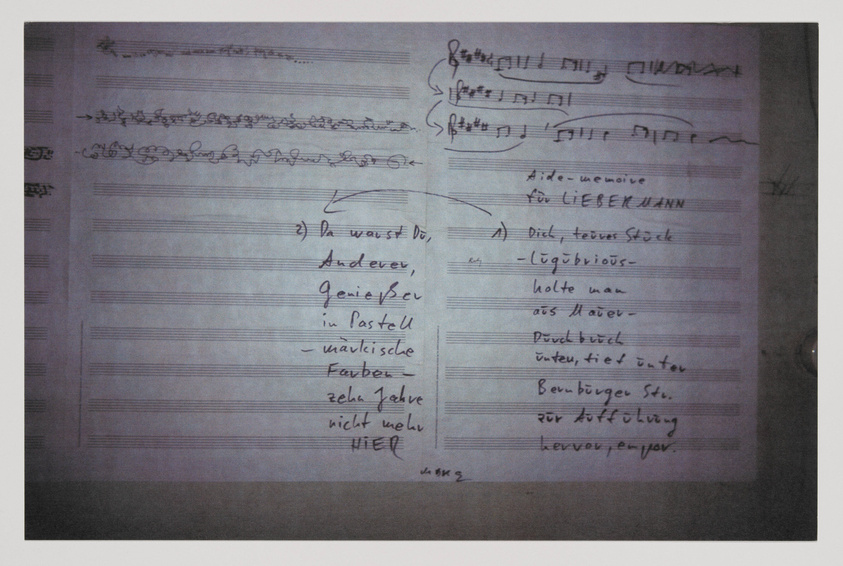 Aide-memoire
für LIEBERMANN
1) Dich, teures Stück
-lugubrious-
holte man
aus Mauer-
Durchbruch
unten, tief unter
Bernburger Str.
zur Aufführung
hervor, empor.
2) Da warst Du,
Anderer,
Genießer
in Pastell
- märkische
Farben -
zehn Jahre
nicht mehr
HIER